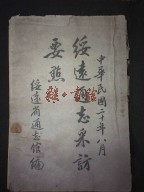 中華民國二十年八月
綏遠通志采訪
要點
綏遠省通志館編